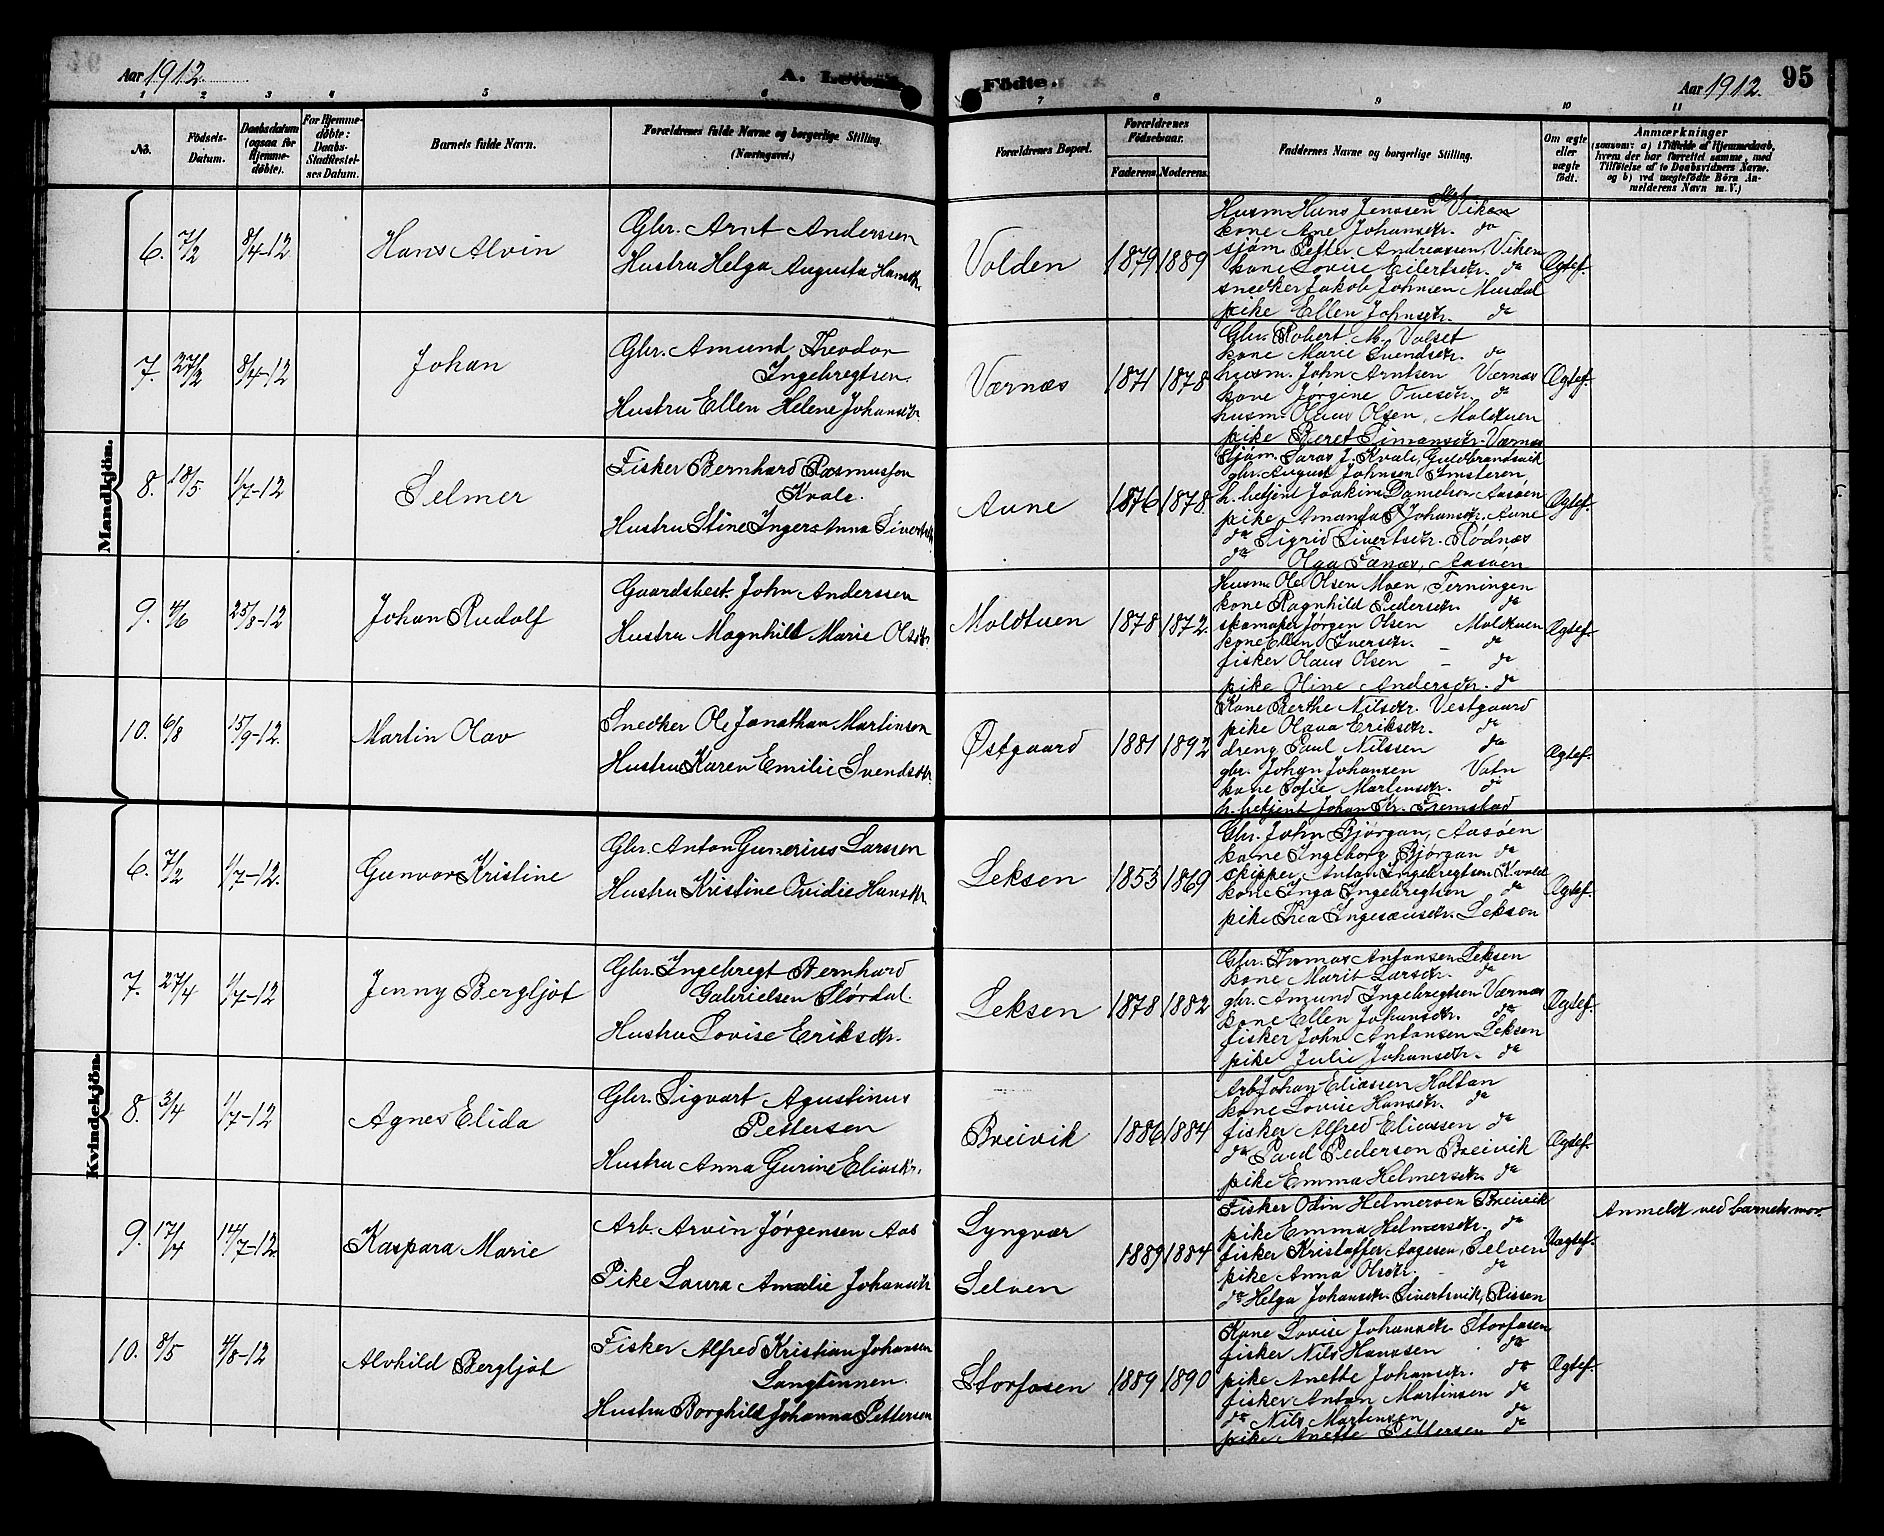 Aar 1912.
A. Levende Fødte.
Aar 1912. 95
1 2 3 4 5 6 7 8 9 10 11
No.
Fødsels-Datum.
Daabsdatum (ogsaa for Hjemme-døbte).
For Hjemme-døbte: Daabs-Stadfæstel-ses Datum.
Barnets fulde Navn.
Forældrenes fulde Navne og borgerlige Stilling. (Næringsvei.)
Forældrenes Bopæl.
Forældrenes Fødselsaar.
Faderens. Moderens.
Faddernes Navne og borgerlige Stilling.
Om ægte eller uægte født.
Anmærkninger
(saasom: a) i Tilfælde af Hjemmedaab, hvem der har forrettet samme, med Tilføielse af to Daabsvidners Navne. og b) ved uægtefødte Børn An-melderens Navn m. V.)
Mandkjön.
6. 7/2 8/4-12 Hans Alvin
Gbr. Arnt Anderssen
Hustru Helga Augusta Hansdtr.
Volden 1879 1889
Husm. Hans Jenssen Viken
kone Ane Johansdtr. do
sjøm. Petter Andreassen Viken
kone Lovise Eilertsdtr. do
snedker Jakob Johnsen Musdal
pike Ellen Johnsdtr. do
Ægtef.
7. 27/2 8/4-12 Johan
Gbr. Amund Theodor
Ingebregtsen.
Hustru Ellen Helene Johansdtr
Værnæs 1871 1878
Gbr. Robert M. Valset
kone Marie Svendsdtr. do
husm. John Arntsen Værnæs
kone Jørgine Ovesdtr. do
husm. Olaus Olsen, Moldtuen
pike Beret Simonsdtr. Værnæs
Ægtef.
8. 18/5 1/7-12 Selmer
Fisker Bernhard Rasmussen
Kvale.
Hustru Stine Inger Anna Sivertsdtr.
Aune 1876 1878
Sjøm. J. Kvale, Guldbrandsvik
gbr. August Johnsen Smisteren
h. betjent Joakim Danielsen Aasøen
pike Amanda Johansdtr. Aune
do Sigrid Sivertsdtr. Rødnæs
do Olga Fanæs, Aasøen
Ægtef.
9. 4/6 25/8-12 Johan Rudolf
Gaardsbest. John Anderssen
Hustru Magnhild Marie Olsdtr
Moldtuen 1878 1872.
Husm. Ole Olsen Moen Terningen
kone Ragnhild Pedersdtr. do
skomaker Jørgen Olsen Moldtuen
kone Ellen Iversdtr. - do
fisker Olaus Olsen - do
pike Oline Andersdtr. do
Ægtef.
10. 6/8 15/9-12. Martin Olav
Snedker Ole Jonathan Martinsen
Hustru Karen Emilie Svendsdtr.
Østgaard 1881 1892
Kone Berthe Nilsdtr. Vestgaard
pike Olava Eriksdtr. do
dreng Paul Nilssen do
gbr. Johan Johansen Vatn
kone Sofie Martinsdtr. do
h. betjent Johan Kr. Fremstad
Ægtef.
Kvindekjön.
6. 7/2 1/7-12. Gunvor Kristine
Gbr. Anton Gunerius Larssen
Hustru Kristine Ovidie Hansdtr
Leksen 1853 1869
Gbr. John Bjørgan, Aasøen
kone Ingeborg Bjørgan do
skipper Anton Ingebregtsen Kvald
kone Inga Ingebregtsen do
pike Thea Leksen
Ægtef.
7. 27/4 1/7-12 Jenny Bergljot
Gbr. Ingebregt Bernhard
Gabrielsen Størdal.
Hustru Lovise Eriksdtr.
Leksen 1878 1882
Gbr. Thomas Antonsen Leksen
kone Marit Larsdtr. do
gbr. Amund Ingebregtsen Værnæs
kone Ellen Johansdtr. do
fisker John Antonsen Leksen
pike Julie Johansdtr. do
Ægtef.
8. 3/4 1/7-12 Agnes Elida
Gbr. Sigvart Agustinus
Pettersen
Hustru Anna Gurine Eliasdtr.
Breivik 1886 1884
Arb. Johan Eliassen Holtan
kone Lovise Hansdtr. do
fisker Alfred Eliassen do
do Paul Pedersen Breivik
pike Emma Helmersdtr. do
Ægtef.
9. 17/4 14/7-12 Kaspara Marie
Arb. Arvin Jørgensen Aas
Pike Laura Amalie Johansdtr
Lyngvær
Selven
1889 1884
Fisker Odin Helmersen Breivik
pike Emma Helmersdtr. do
fisker Kristoffer Aagesen, Selven
pike Anna Olsdtr. - do
do Helga Johansdtr. Sivertsvik, Rissen
Uægtef.
Anmeldt ved barnets mor.
10. 8/5 4/8-12 Alvhild Bergljot
Fisker Alfred Kristian Johansen
Langtinnen.
Hustru Borghild Johanna Pettersen
Storfosen 1889 1890
Kone Lovise Johansdtr. Storfosen
fisker Nils Hanssen do
pike Anette Johansdtr. do
fisker Anton Martinsen do
do Nils Martinsen do
pike Anette Pettersen do
Ægtef.